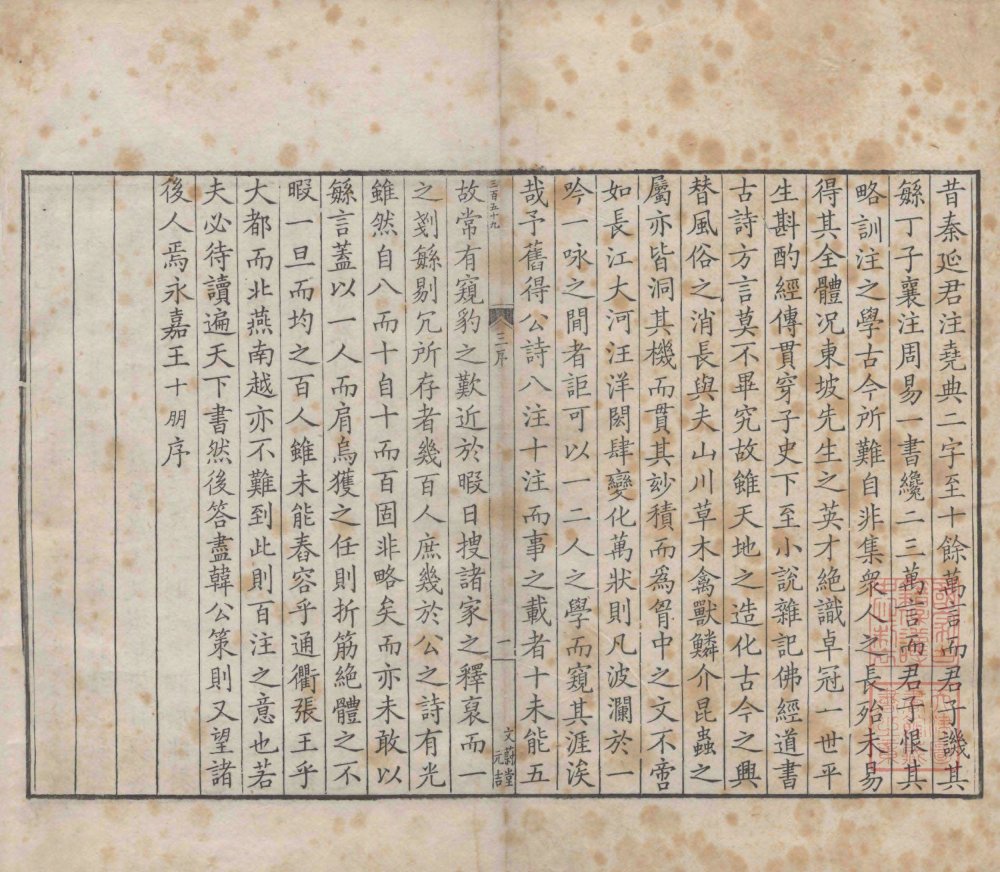 昔秦延君注堯典二字至十餘萬言而君子譏其
緐丁子襄注周易一書纔二三萬言而君子恨其
略訓注之學古今所難自非集衆人之長殆未易
得其全體况東坡先生之英才絶識卓冠一世平
生斟酌經傳貫穿子史下至小說雜記佛經道書
古詩方言莫不畢究故雖天地之造化古今之興
替風俗之消長與夫山川草木禽獸鱗介昆蟲之
屬亦皆洞其機而貫其玅積而爲胷中之文不啻
如長江大河汪洋閎肆變化萬狀則凡波瀾於一
吟一咏之間者詎可以一二人之學而窺其涯涘
哉予舊得公詩八注十注而事之載者十未能五
三百五十九
三序
一
文蔚堂
元吉
故常有窺豹之歎近於暇日搜諸家之釋裒而一
之剗緐剔冗所存者幾百人庶幾於公之詩有光
雖然自八而十自十而百固非略矣而亦未敢以
緐言蓋以一人而肩烏獲之任則折筋絶體之不
暇一旦而均之百人雖未能舂容乎通衢張王乎
大都而北燕南越亦不難到此則百注之意也若
夫必待讀遍天下書然後答盡韓公策則又望諸
後人焉永嘉王十朋序